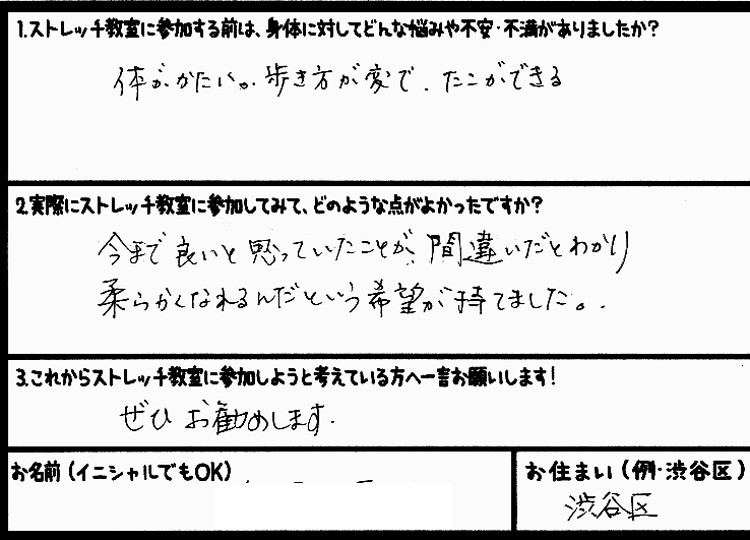 1.ストレッチ教室に参加する前は、身体に対してどんな悩みや不安・不満がありましたか?
体が、かたい。歩き方が変で、たこができる
2.実際にストレッチ教室に参加してみて、どのような点がよかったですか?
今まで良いと思っていたことが、間違いだとわかり
柔らかくなれるんだという希望が持てました。
3.これからストレッチ教室に参加しようと考えている方へ一言お願いします!
ぜひお勧めします.
お名前(イニシャルでもOK)
お住まい(例・渋谷区)
渋谷区